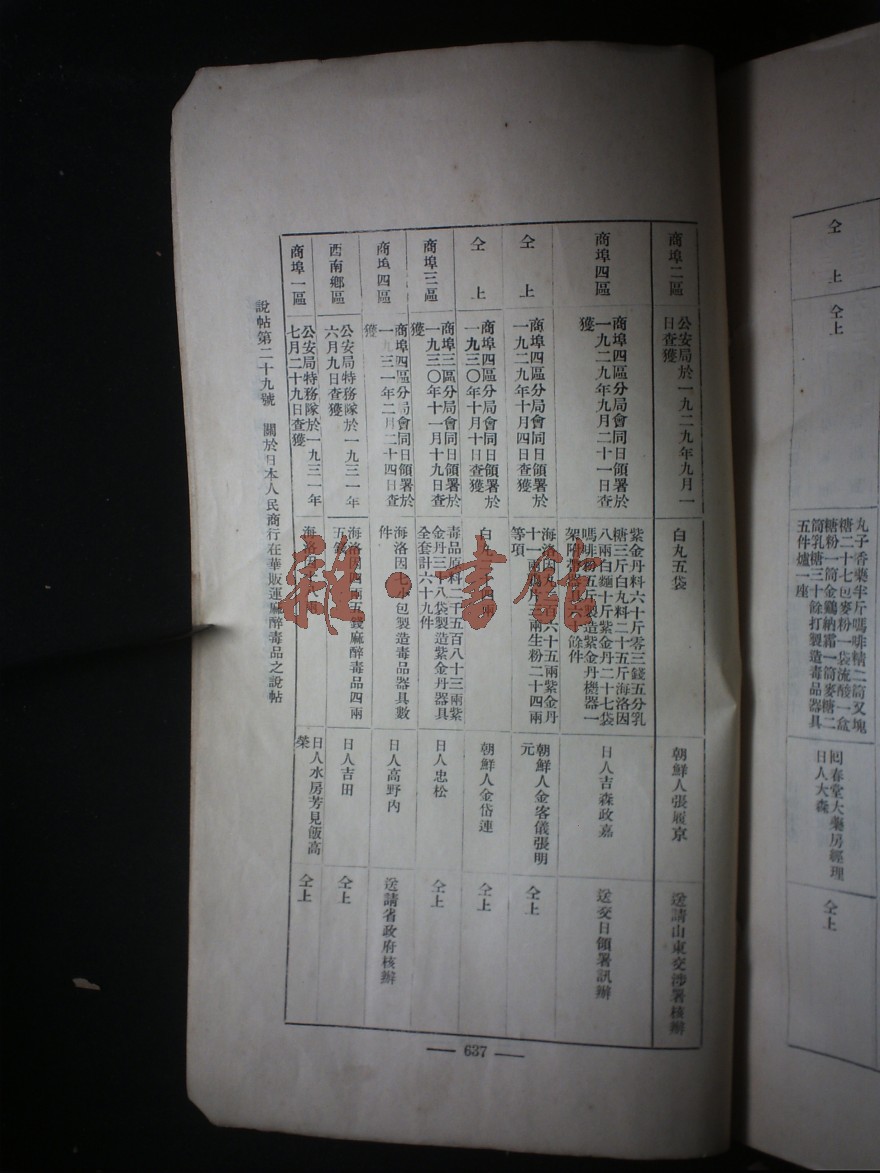 仝上
仝上
丸子香藥半斤嗎啡精二筒又塊
糖二十七包麥粉一袋流酸一盒
糖粉一筒金鷄納霜一筒麥糖二
筒乳糖三十餘打製造毒品器具
五件爐一座
回春堂大藥房經理
日人大森
仝上
商埠二區
公安局於一九二九年九月一
日查獲
白丸五袋
朝鮮人張履京
送請山東交涉署核辦
商埠四區
商埠四區分局會同日領署於
一九二九年九月二十一日查
獲
紫金丹料六十斤零三錢五分乳
糖三斤白丸料二十五斤海洛因
八兩白麵十斤紫金丹二十七袋
嗎啡粉五斤製造紫金丹機器一
架附帶器具六十餘件
日人吉森政嘉
送交日領署訊辦
仝上
商埠四區分局會同日領署於
一九二九年十月四日查獲
海洛因丸二百六十五兩紫金丹
十一兩鴉片三兩生粉二十四兩
等項
朝鮮人金客儀張明
元
仝上
仝上
商埠四區分局會同日領署於
一九三〇年十月十日查獲
白丸四兩
朝鮮人金岱連
仝上
商埠三區
商埠三區分局會同日領署於
一九三〇年十一月十九日查
獲
毒品原料二千五百八十三兩紫
金丹三十八袋製造紫金丹器具
全套計六十九件
日人忠松
仝上
商埠四區
商埠四區分局會同日領署於
一九三一年二月二十四日查
獲
海洛因七小包製造毒品器具數
件
日人高野內
送請省政府核辦
西南鄉區
公安局特務隊於一九三一年
六月九日查獲
海洛因四兩五錢麻醉毒品四兩
五錢
日人吉田
仝上
商埠一區
公安局特務隊於一九三一年
七月二十九日查獲
海洛因
日人水房芳見飯高
榮
仝上
說帖第二十九號 關於日本人民商行在華販運麻醉毒品之說帖
637